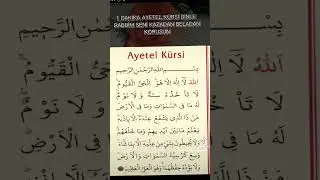 1 DAKİKA AYETEL KÜRSİ DİNLE
RABBİM SENİ KAZADAN BELADAN
KORUSUN
Ayetel Kürsi
بِسْمِ اللّٰهِ الرَّحْمٰنِ الرَّحِيمِ
اَللّٰهُ لَا اِلٰهَ اِلَّا هُوَ الْحَىُّ الْقَيُّومُ
لَا تَأْخُذُهُ سِنَةٌ وَلَا نَوْمٌ
لَهُ مَا فِى السَّمٰوَاتِ وَمَا فِى الْاَرْضِ
مَنْ ذَا الَّذِى يَشْفَعُ عِنْدَهُ اِلَّا بِاِذْنِهِ
يَعْلَمُ مَا بَيْنَ اَيْدِيهِمْ وَمَا خَلْفَهُمْ
وَلَا يُحِيطُونَ بِشَىْءٍ مِنْ عِلْمِهِ اِلَّا بِمَا شَاءَ
وَسِعَ كُرْسِيُّهُ السَّمٰوَاتِ وَالْاَرْضَ
وَلَا يَؤُدُهُ حِفْظُهُمَا وَهُوَ الْعَلِىُّ الْعَظِيمُ